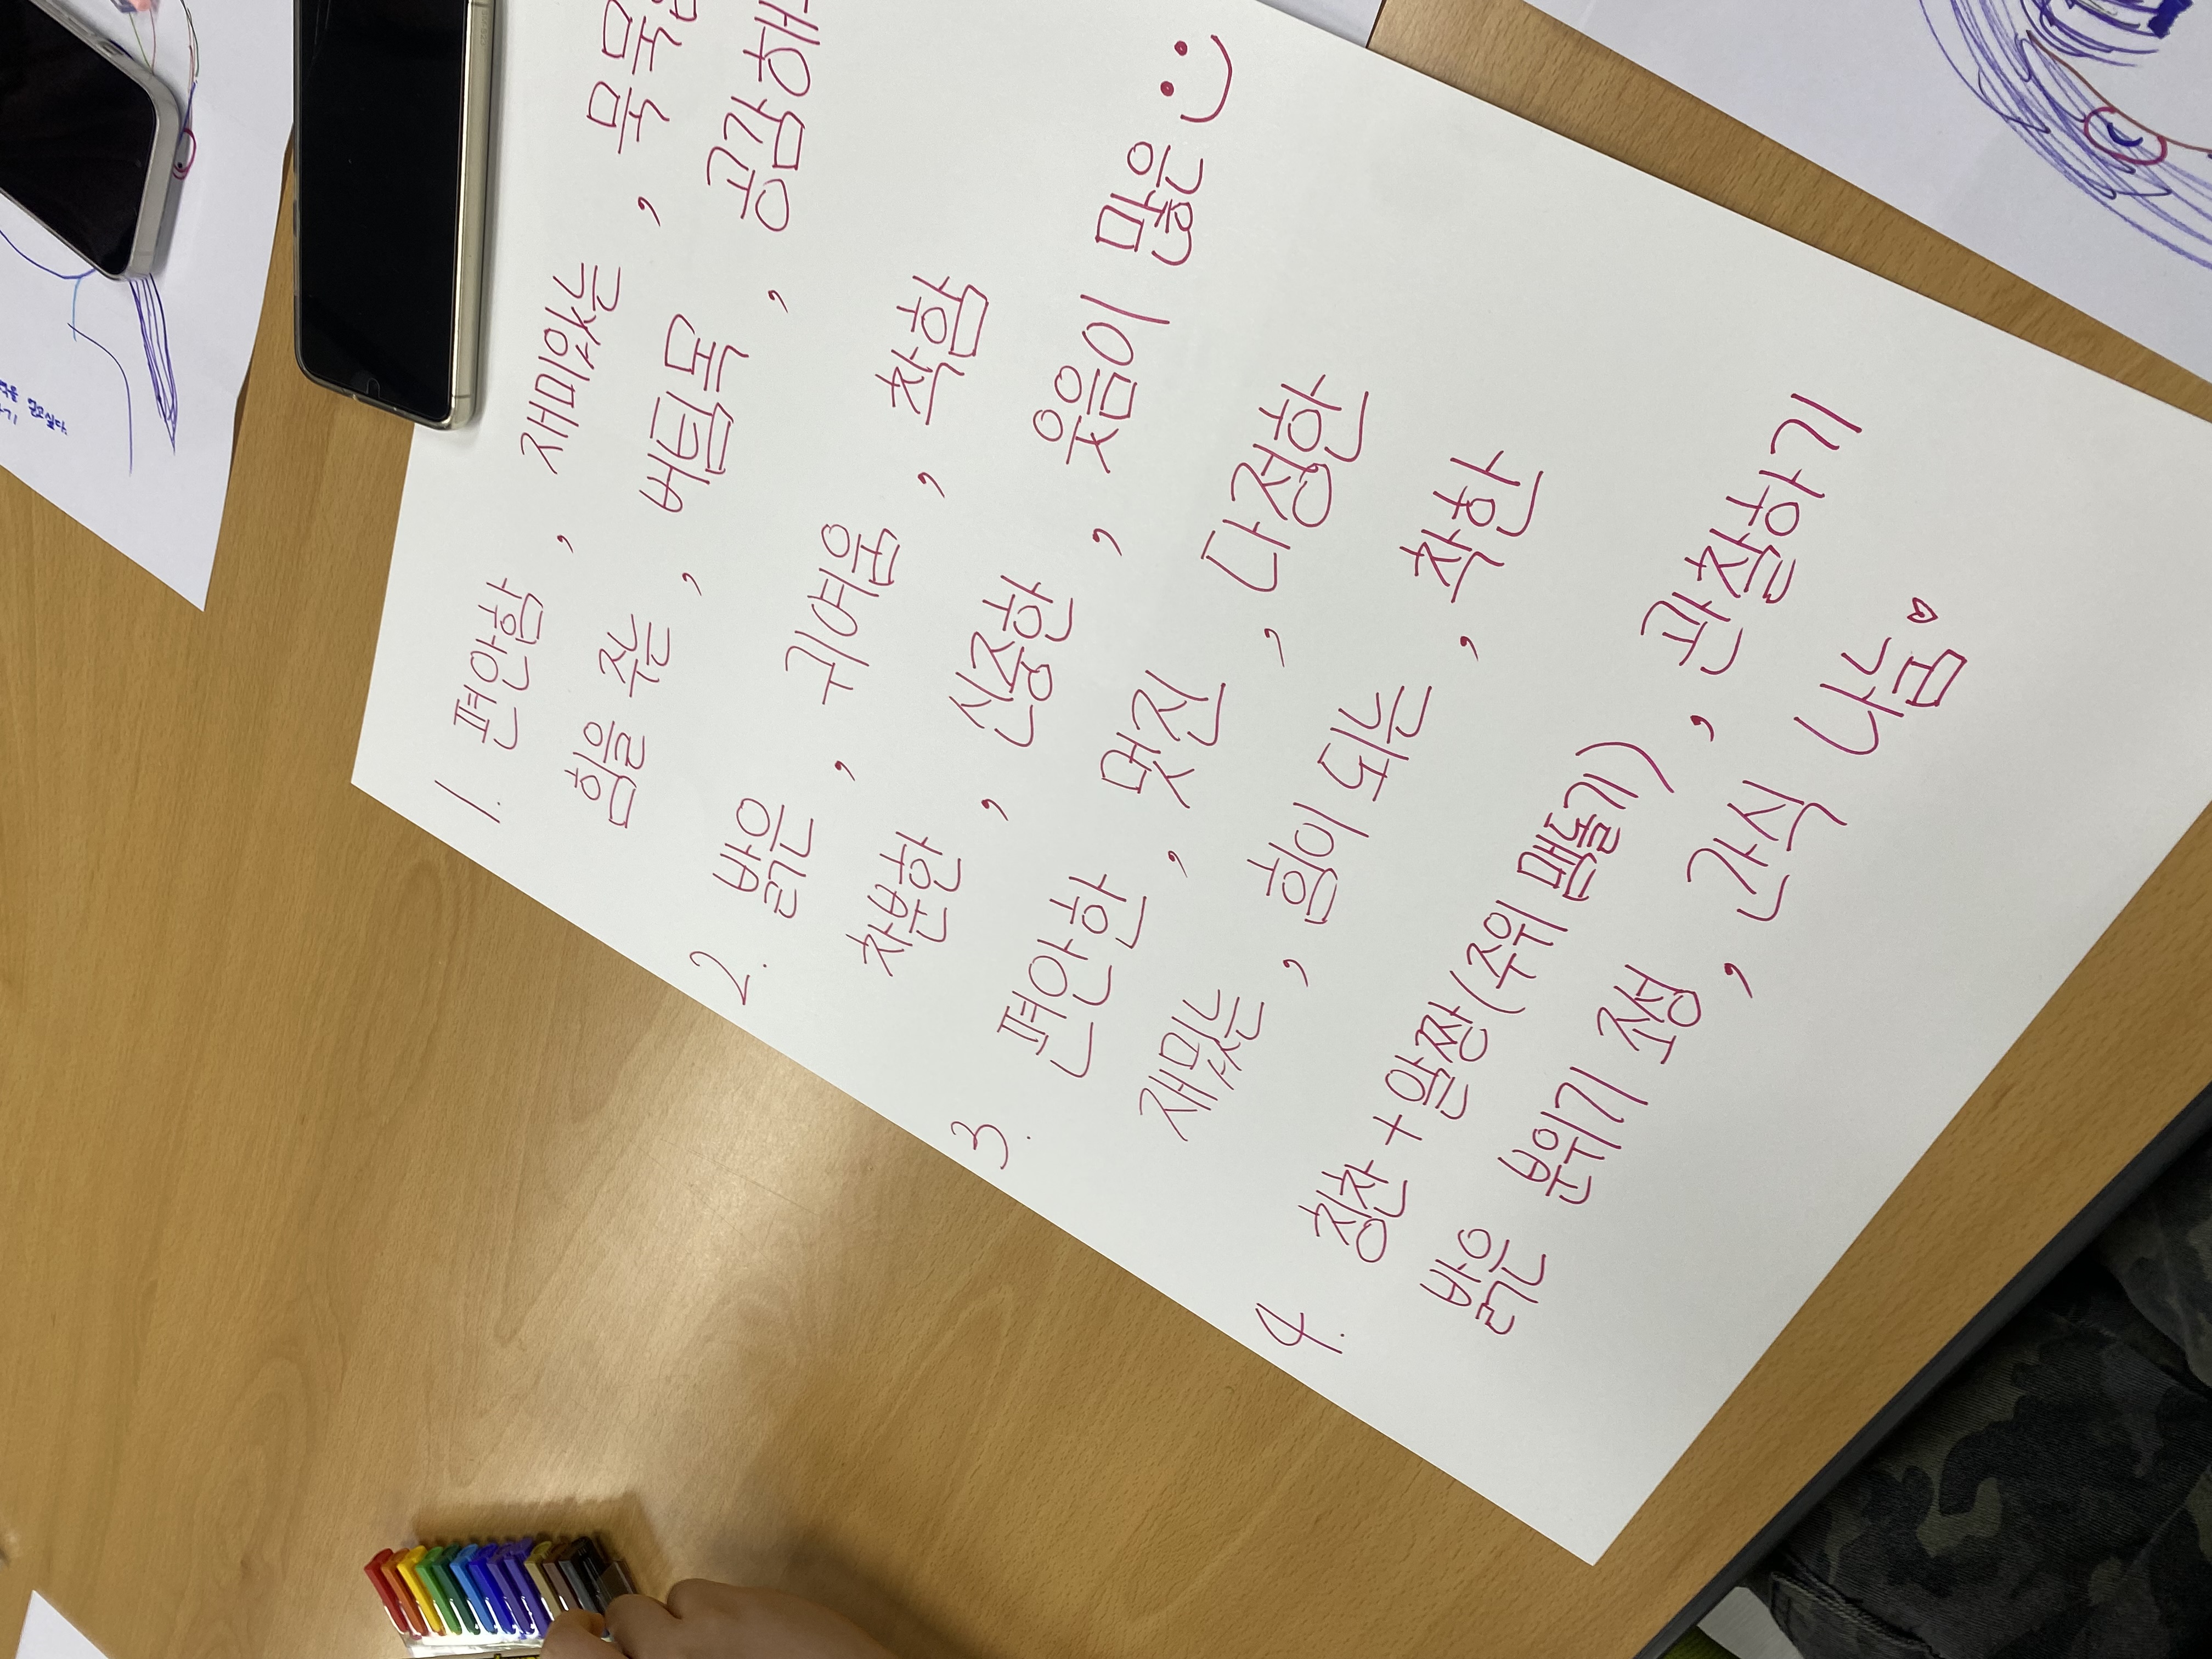 1. 편안함, 재미있는, 묵묵
힘을 주는, 버팀목, 공감해
2. 밝은, 귀여움, 착함
차분한, 신중한, 웃음이 많은
3. 편안한, 멋진, 다정한
재밌는, 힘이 되는, 착한
4. 칭찬+알짱(주위 맴돌기), 관찰하기
밝은 분위기 조성, 간식 나눔